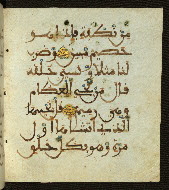 من نطفة فإذا هو
خصيم مبين وضرب
لنا مثلا ونسي خلقه
قال من يحي العظام
وهي رميم قل يحييها
الذي أنشأها أول
مرة وهو بكل خلق